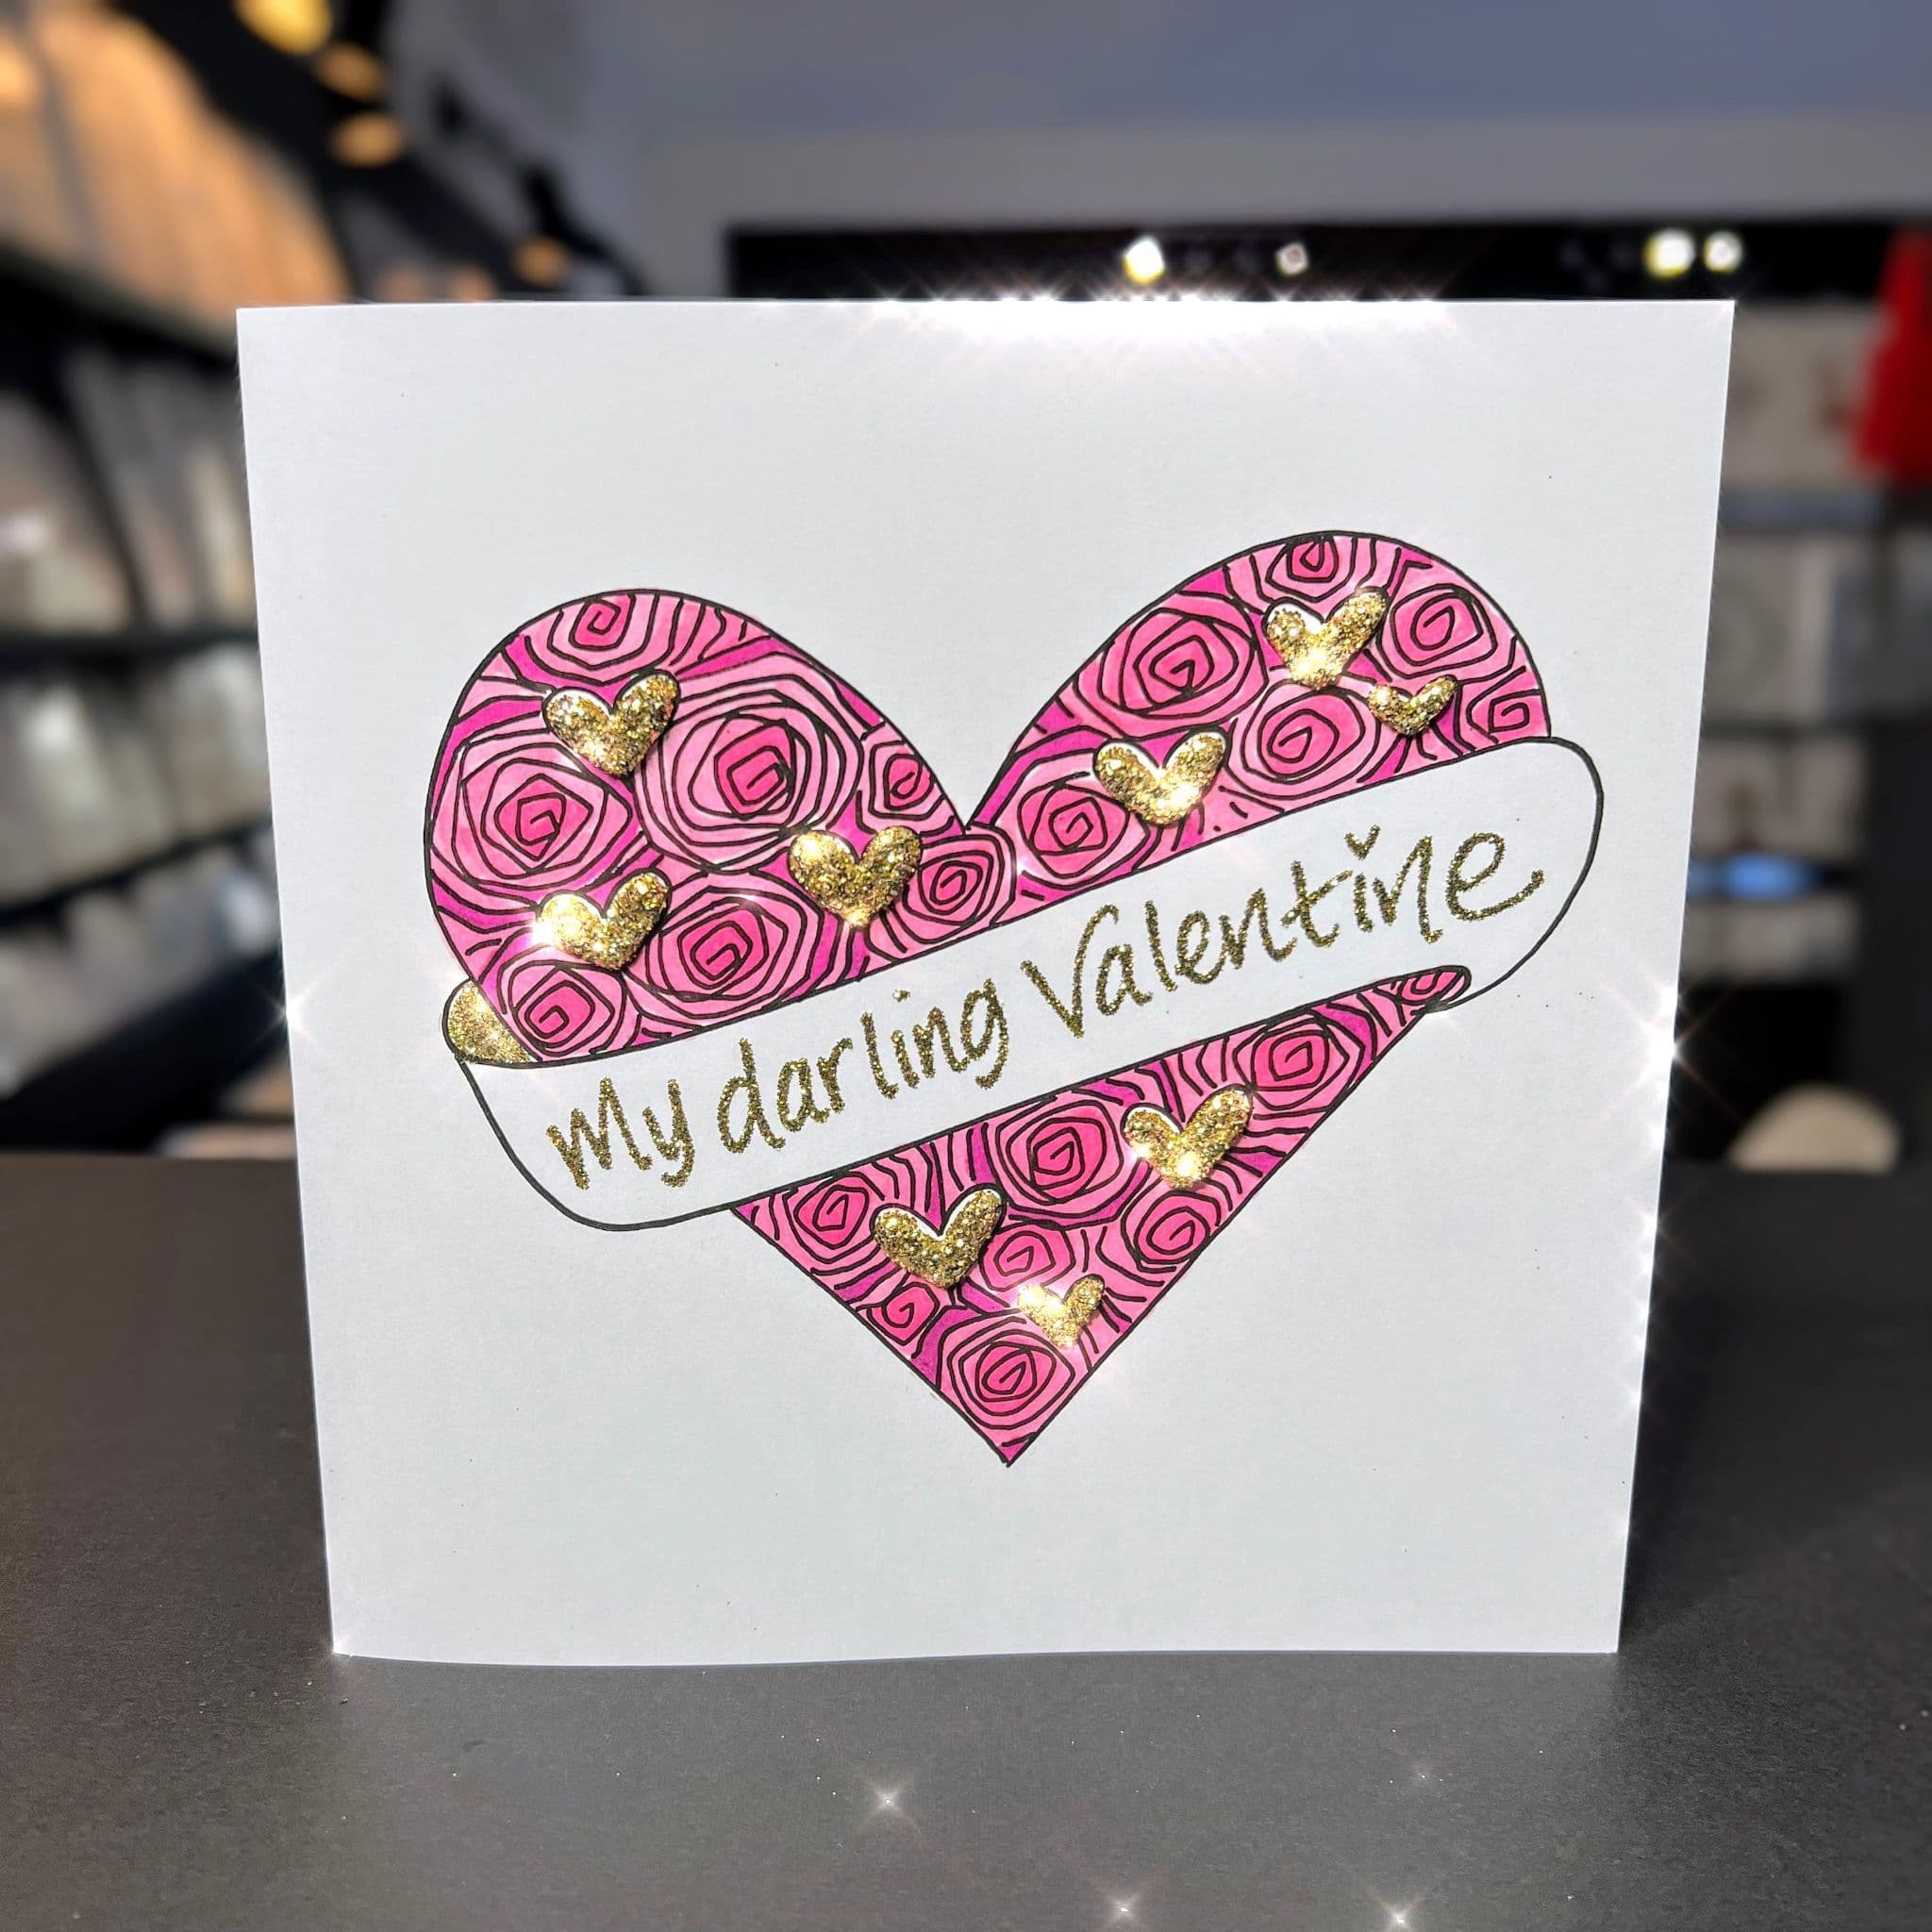 My darling Valentine